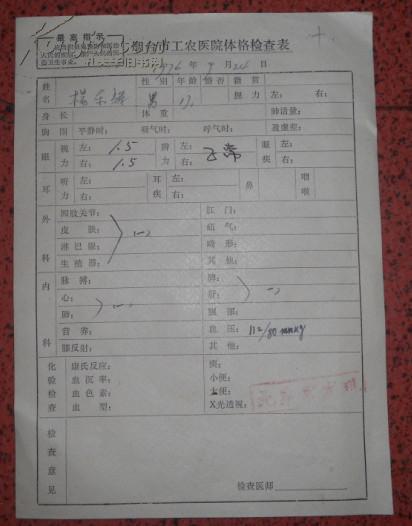 最高指示
烟台市工农医院体格检查表
1976年9月24日
姓名 性别 男 年龄 17 婚否 籍贯
握力 左： 右：
身长 体重 肺活量：
胸围 平静时： 吸气时： 呼气时： 盈虚差：
眼 视力 左：1.5 右：1.5 辨色 左： 右： 正常 眼疾 左： 右：
耳 听力 左： 右： 耳疾 左： 右： 鼻 咽 喉
外科 四肢关节： 肛门：
皮肤： (一) 疝气：
淋巴腺： 畸形：
生殖器： 其他：
内科 脉搏： 脾：
心： (一) 肝： (一)
肺： 腹部：
营养： 血压：112/80mmHg
膝反射： 其他：
化验检查 康氏反应： 痰：
血沉率： 小便：
血色素： 大便：
血型： X光透视：
检查意见
检查医师